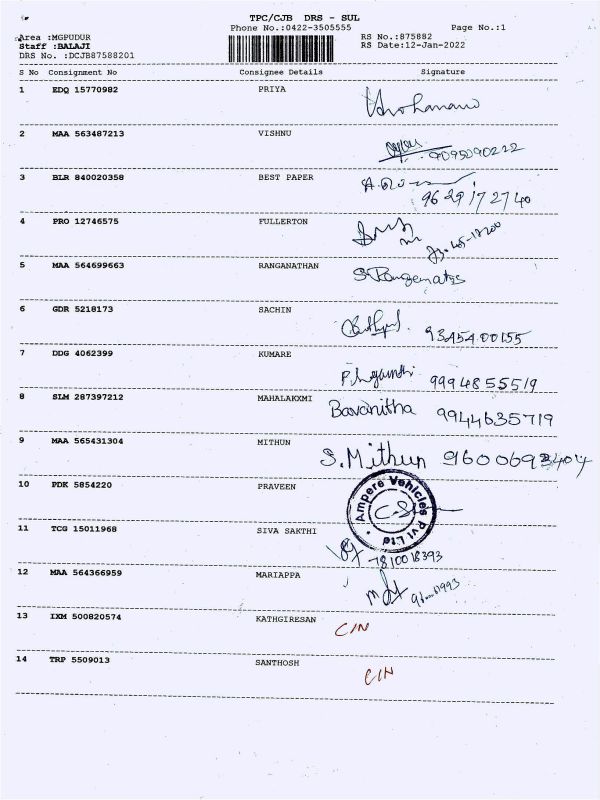 TPC/CJB DRS - SUL
Phone No.:0422-3505555 Page No.:1
Area :MGPUDUR RS No.:875882
Staff :BALAJI RS Date:12-Jan-2022
DRS No. :DCJB87588201
S No Consignment No Consignee Details Signature
1 EDQ 15770982 PRIYA
2 MAA 563487213 VISHNU
9095090222
3 BLR 840020358 BEST PAPER
9629172740
4 PRO 12746575 FULLERTON
5 MAA 564699663 RANGANATHAN
6 GDR 5218173 SACHIN
93454 00155
7 DDG 4062399 KUMARE
9994855519
8 SLM 287397212 MAHALAKXMI Bavanitha 9944635719
9 MAA 565431304 MITHUN
S.Mithun
10 PDK 5854220 PRAVEEN
Ampere Vehicles Pvt Ltd
11 TCG 15011968 SIVA SAKTHI
7810018393
12 MAA 564366959 MARIAPPA
13 IXM 500820574 KATHGIRESAN C/N
14 TRP 5509013 SANTHOSH C/N